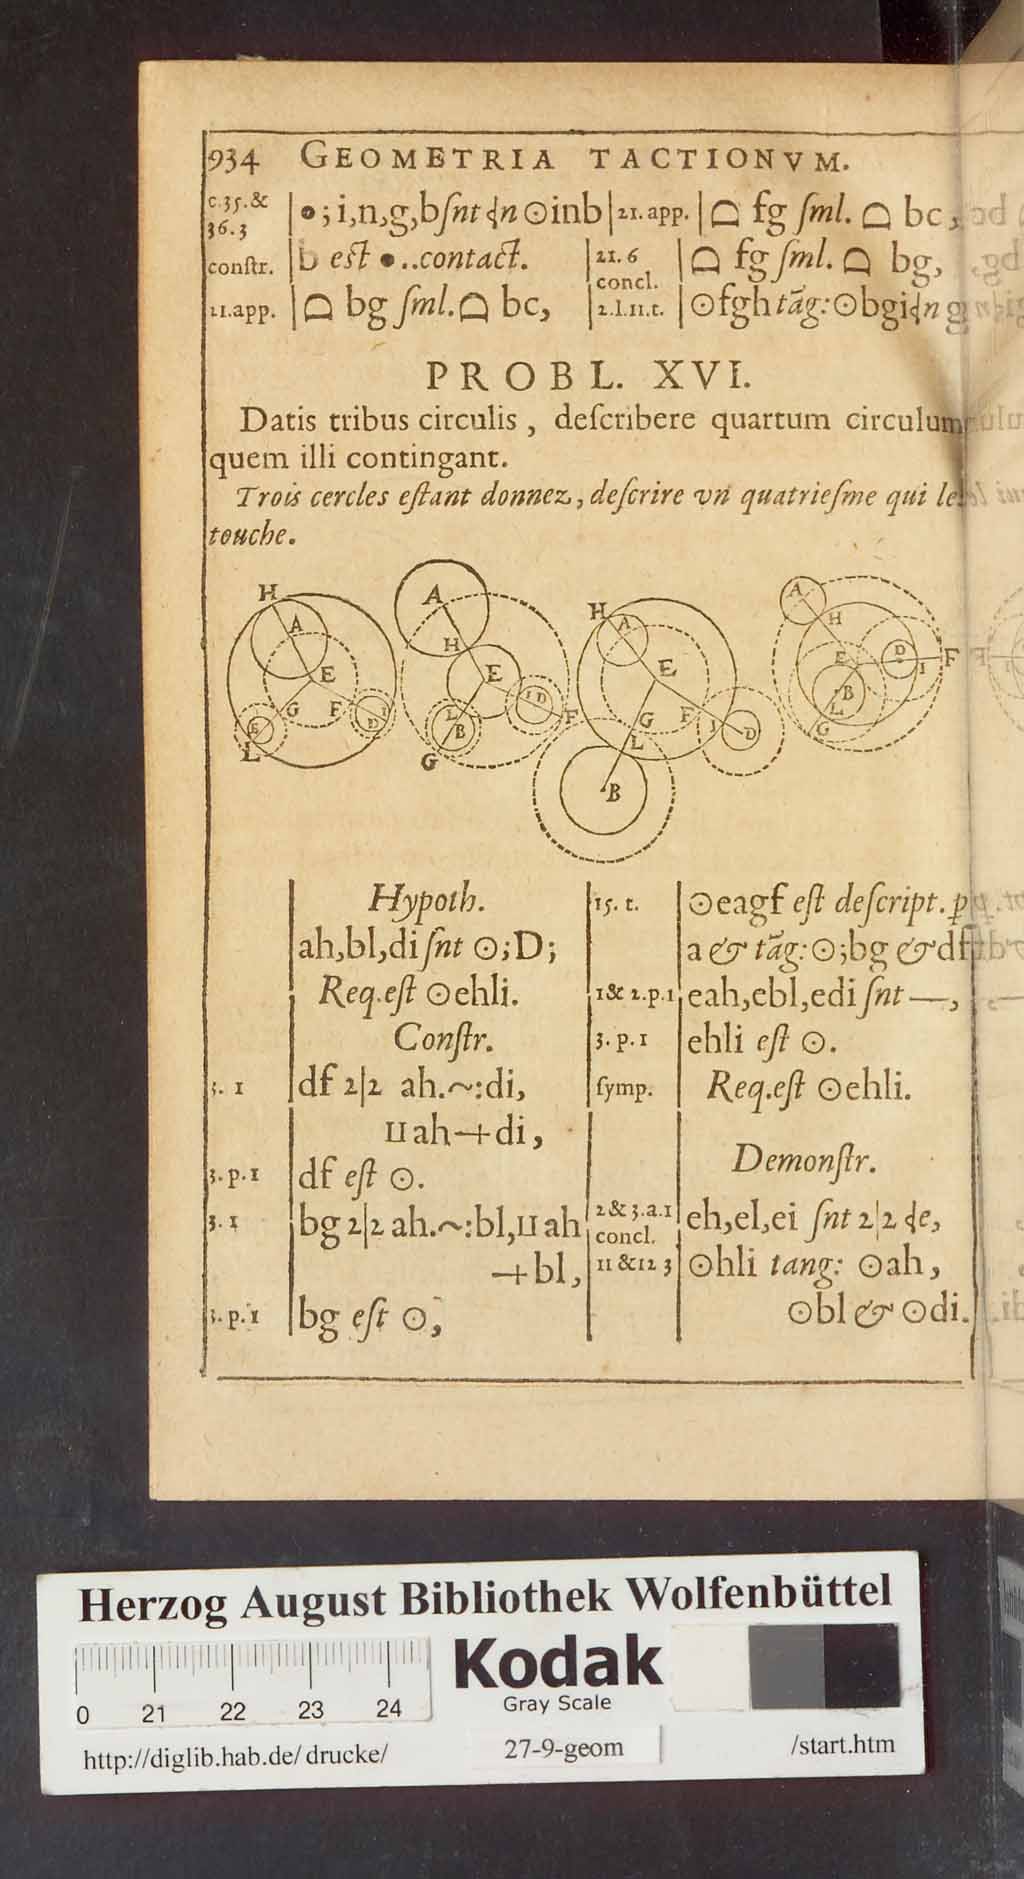 934 GEOMETRIA TACTIONVM.
c.35.&
36.3
•; i,n,g,b ſnt ⊰n ⊙inb
21.app.
⌓ fg ſml. ⌓ bc,
conſtr.
b eſt •..contact.
21.6
concl.
⌓ fg ſml. ⌓ bg,
21.app.
⌓ bg ſml. ⌓ bc,
2.l.11.t.
⊙fgh tāg: ⊙bgi ⊰n g
PROBL. XVI.
Datis tribus circulis, deſcribere quartum circulum
quem illi contingant.
Trois cercles eſtant donnez, deſcrire vn quatrieſme qui les
touche.
H A E G F D I L
A H E I D F L B G
H A E G F I D L B
A H E D I F B L G
Hypoth.
ah,bl,di ſnt ⊙;D;
Req.eſt ⊙ehli.
Conſtr.
3. 1
df 2|2 ah.~:di,
ıı ah+di,
3.p.1
df eſt ⊙.
3.1
bg 2|2 ah.~:bl, ıı ah
+bl,
3.p.1
bg eſt ⊙,
15. t.
⊙eagf eſt deſcript. ꝑ
a & tāg: ⊙;bg & df
1& 2.p.1
eah,ebl,edi ſnt —,
3. p. 1
ehli eſt ⊙.
ſymp.
Req.eſt ⊙ehli.
Demonſtr.
2& 3.a.1
concl.
eh,el,ei ſnt 2|2 ⊰e,
11 &12 3
⊙hli tang: ⊙ah,
⊙bl & ⊙di.
Herzog August Bibliothek Wolfenbüttel
Kodak
Gray Scale
0 21 22 23 24
http://diglib.hab.de/drucke/ 27-9-geom /start.htm